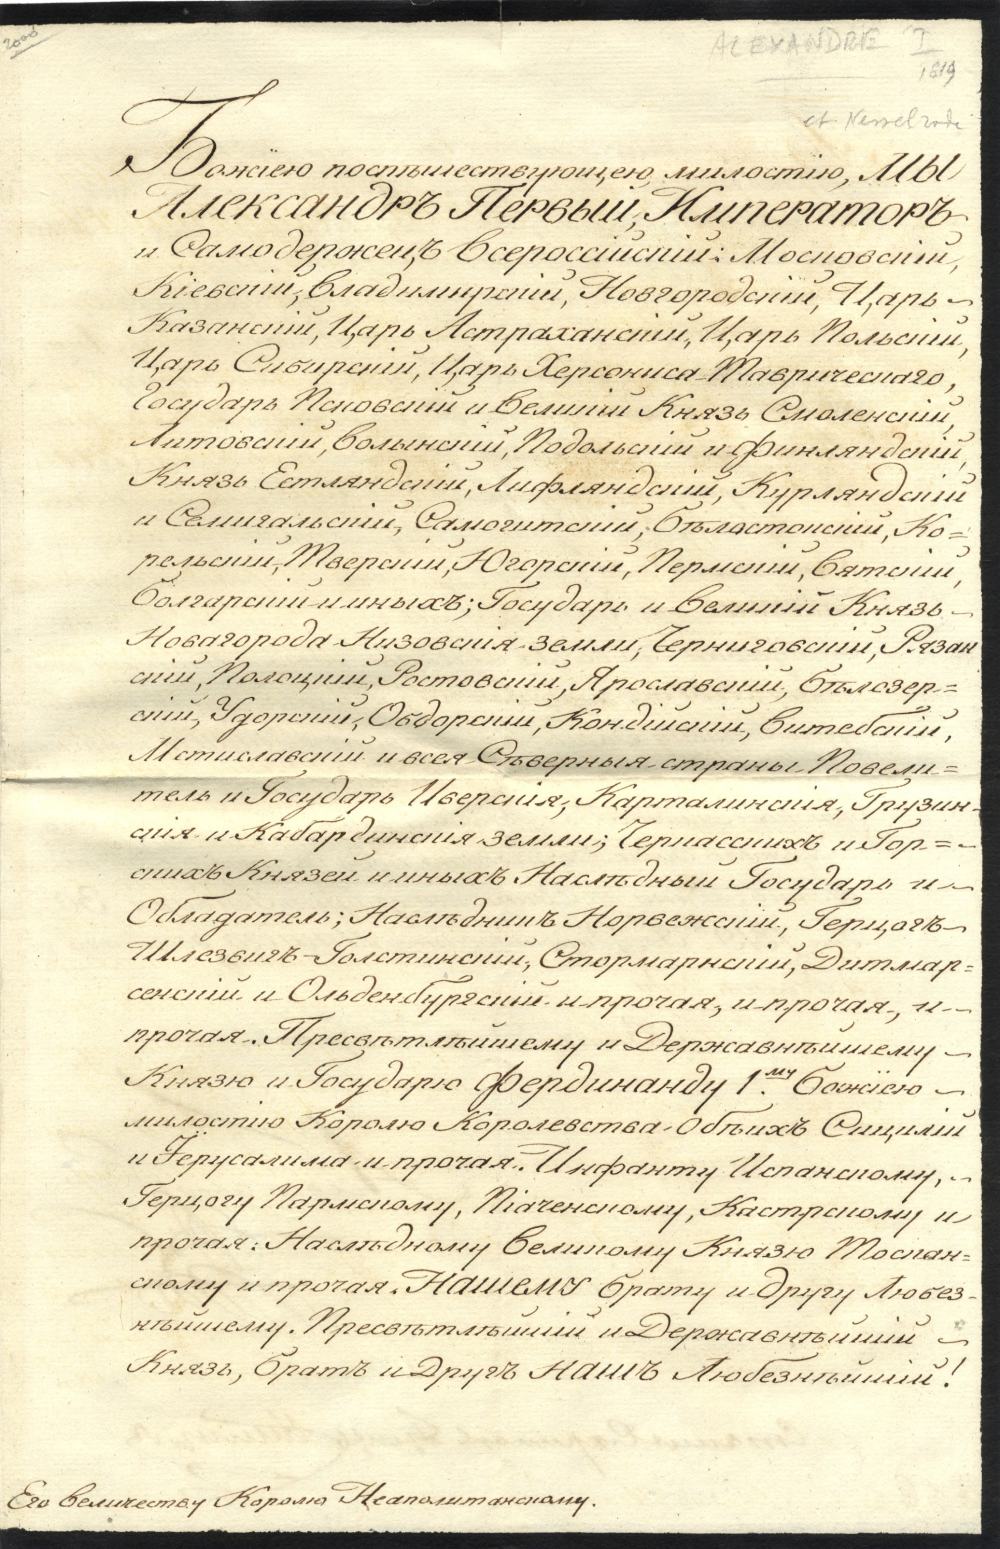 2000
ALEXANDRE I
1819
et Nesselrode
Божіею поспѣшествующею милостію, МЫ
Александръ Первый, Императоръ
и Самодержецъ Всероссійскій: Московскій,
Кіевскій, Владимирскій, Новгородскій, Царь
Казанскій, Царь Астраханскій, Царь Польскій,
Царь Сибирскій, Царь Херсониса-Таврическаго,
Государь Псковскій и Великій Князь Смоленскій,
Литовскій, Волынскій, Подольскій и Финляндскій,
Князь Естляндскій, Лифляндскій, Курляндскій
и Семигальскій, Самогитскій, Бѣлостокскій, Ко=
рельскій, Тверскій, Югорскій, Пермскій, Вятскій,
Болгарскій и иныхъ; Государь и Великій Князь
Новагорода Низовскія земли, Черниговскій, Рязан
скій, Полоцкій, Ростовскій, Ярославскій, Бѣлозер=
скій, Удорскій, Обдорскій, Кондійскій, Витебскій,
Мстиславскій и всея Сѣверныя страны Повели=
тель и Государь Иверскія, Карталинскія, Грузин-
скія и Кабардинскія земли; Черкасскихъ и Гор=
скихъ Князей и иныхъ Наслѣдный Государь и
Обладатель; Наслѣдникъ Норвежскій, Герцогъ
Шлезвигъ-Голстинскій, Стормарнскій, Дитмар=
сенскій и Ольденбургскій и прочая, и прочая, и
прочая. Пресвѣтлѣйшему и Державнѣйшему
Князю и Государю Фердинанду 1.му Божіею
милостію Королю Королевства Обѣихъ Сицилій
и Іерусалима и прочая. Инфанту Испанскому,
Герцогу Пармскому, Піаченскому, Кастрскому и
прочая: Наслѣдному Великому Князю Тоскан=
скому и прочая. Нашему Брату и другу Любез-
нѣйшему. Пресвѣтлѣйшій и Державнѣйшій
Князь, Братъ и Другъ Нашъ Любезнѣйшій!
Его Величеству Королю Неаполитанскому.